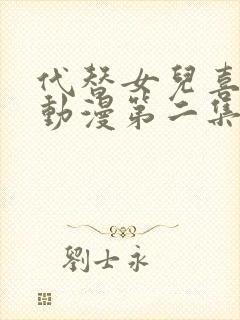 代替女兒喜
動漫第二集
劉士永